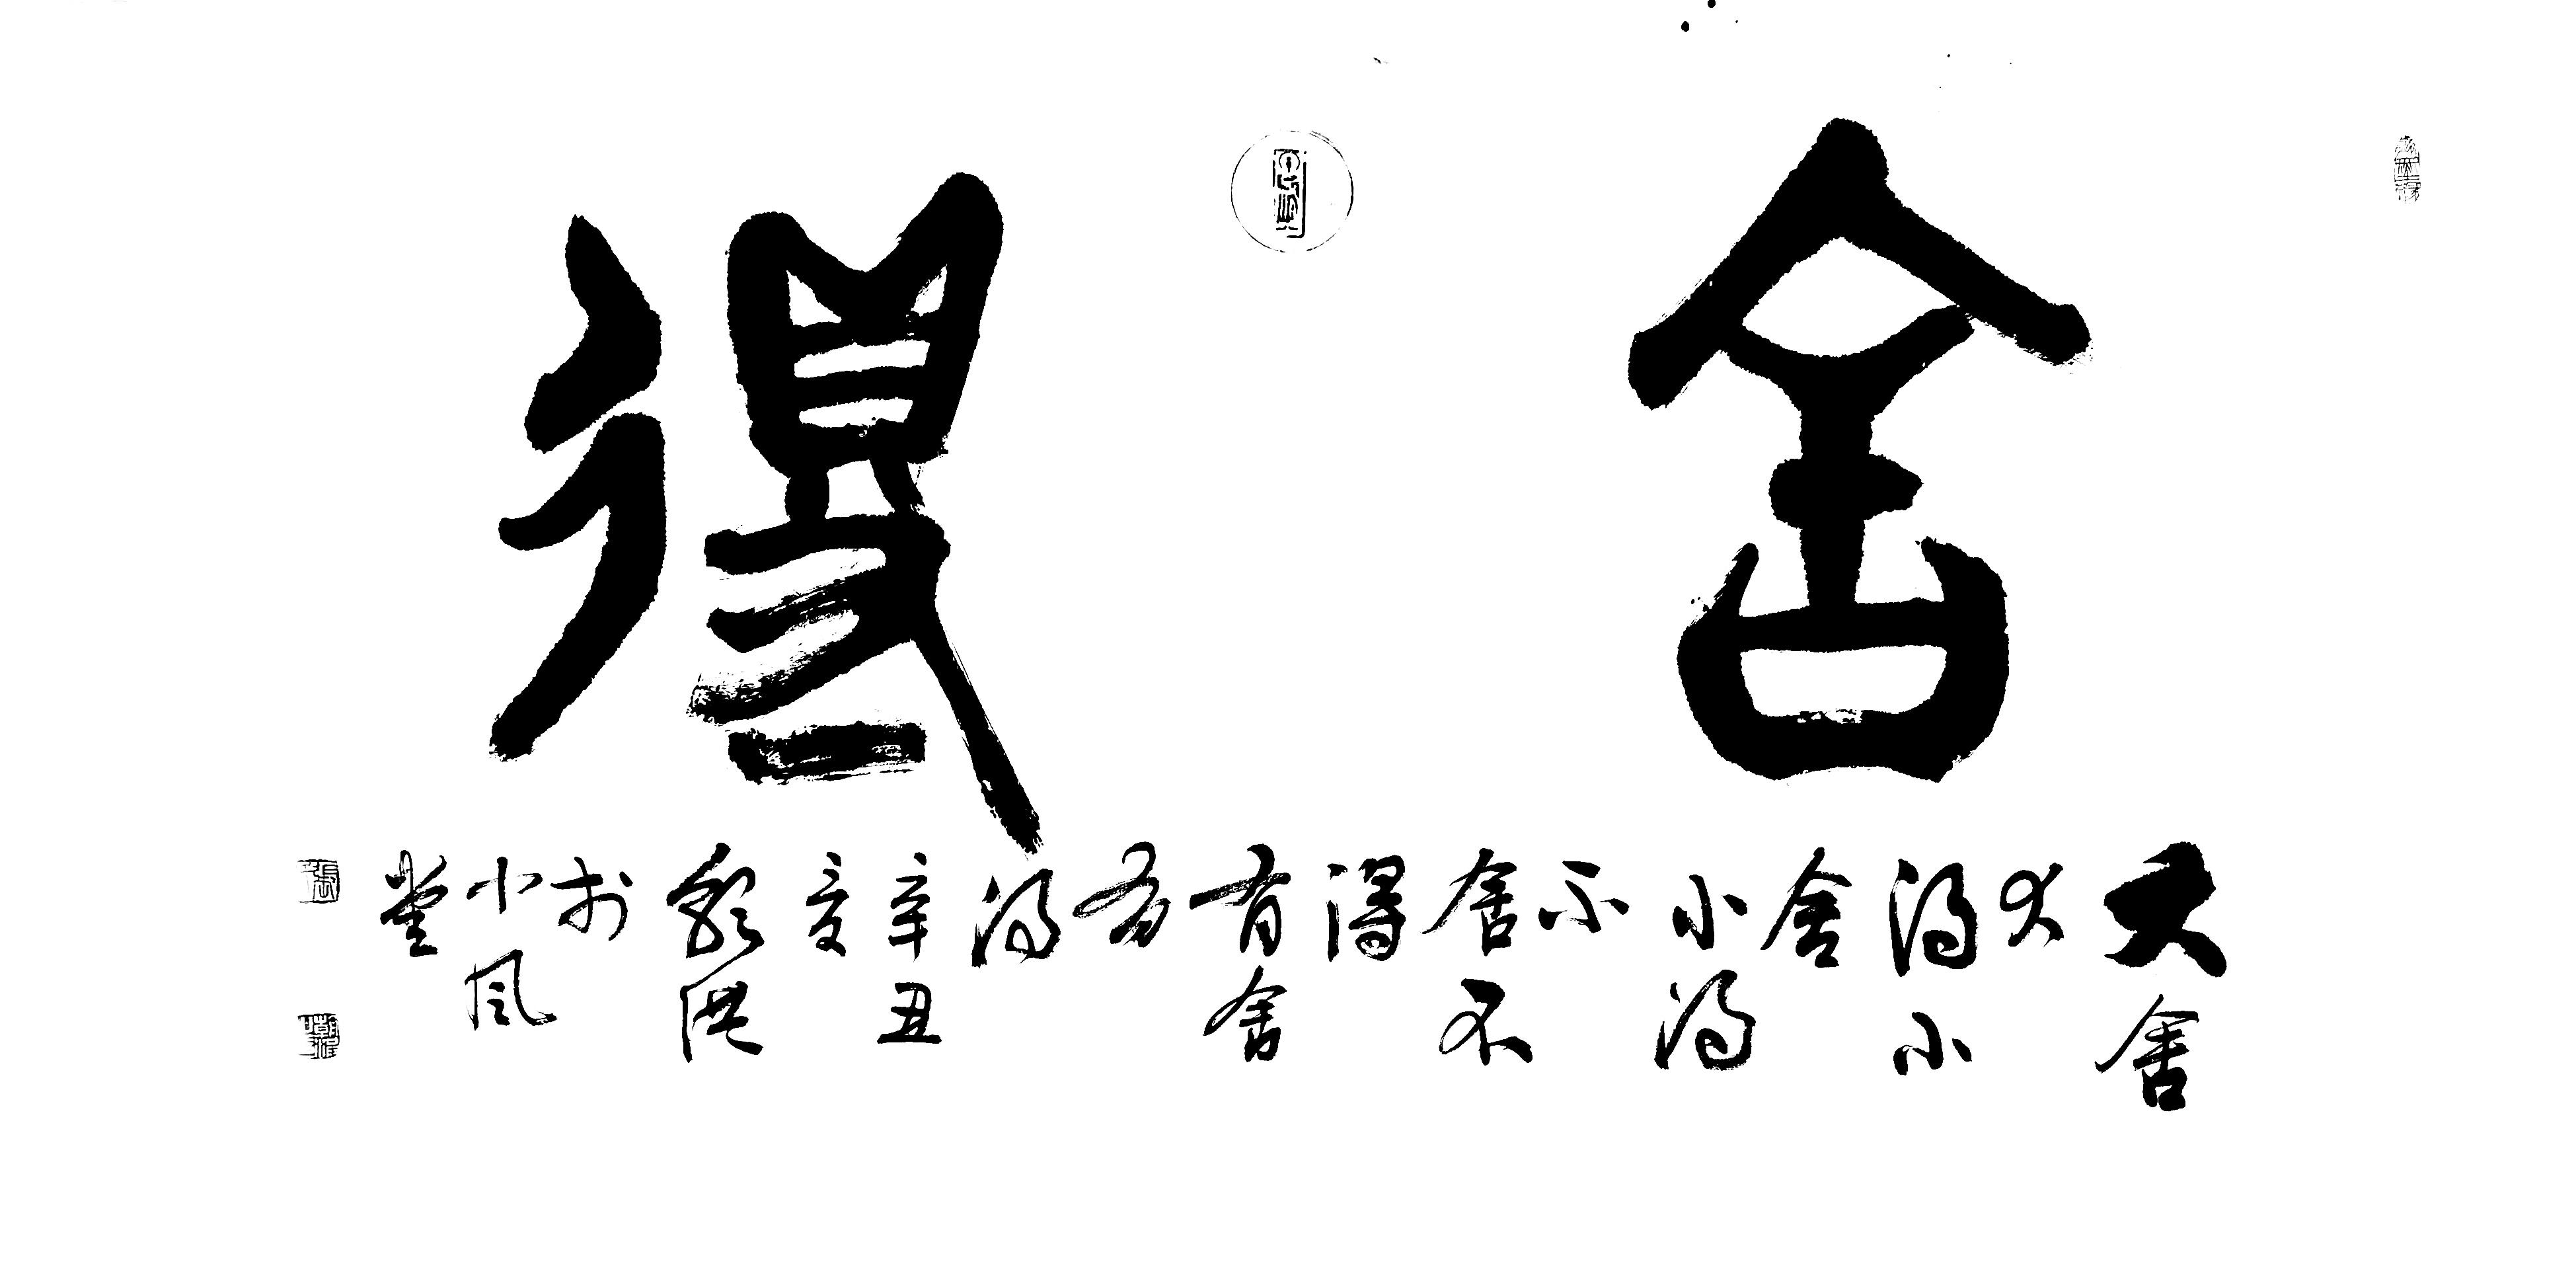 舍得
大舍
大
得小
舍
小得
不
舍不
得
有舍
有
得
辛丑
夏
於
小风
堂